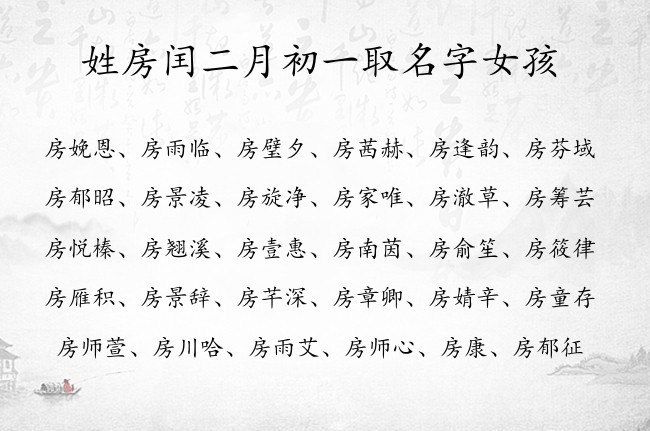 姓房闰二月初一取名字女孩
房娩恩、房雨临、房璧夕、房茜赫、房逢韵、房芬域
房郁昭、房景凌、房旋净、房家唯、房澈草、房筹芸
房悦榛、房翘溪、房壹惠、房南茵、房俞笙、房筱律
房雁积、房景辞、房芊深、房章卿、房婧辛、房童存
房师萱、房川哈、房雨艾、房师心、房康、房郁征